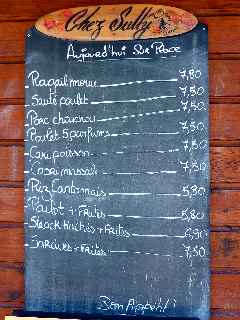 Chez Sully
Aujourd'hui Sur Place
Ragail morue 7,80
Sauté poulet 7,50
Porc chouchou 7,50
Poulet 5 parfums 7,50
Cari poisson 7,50
Cabri massalé 7,50
Riz Cantonnais 5,30
Poulet + Frites 5,80
Steack hachés + Frites
Sarcives + Frites 7,50
Bon Appetit!